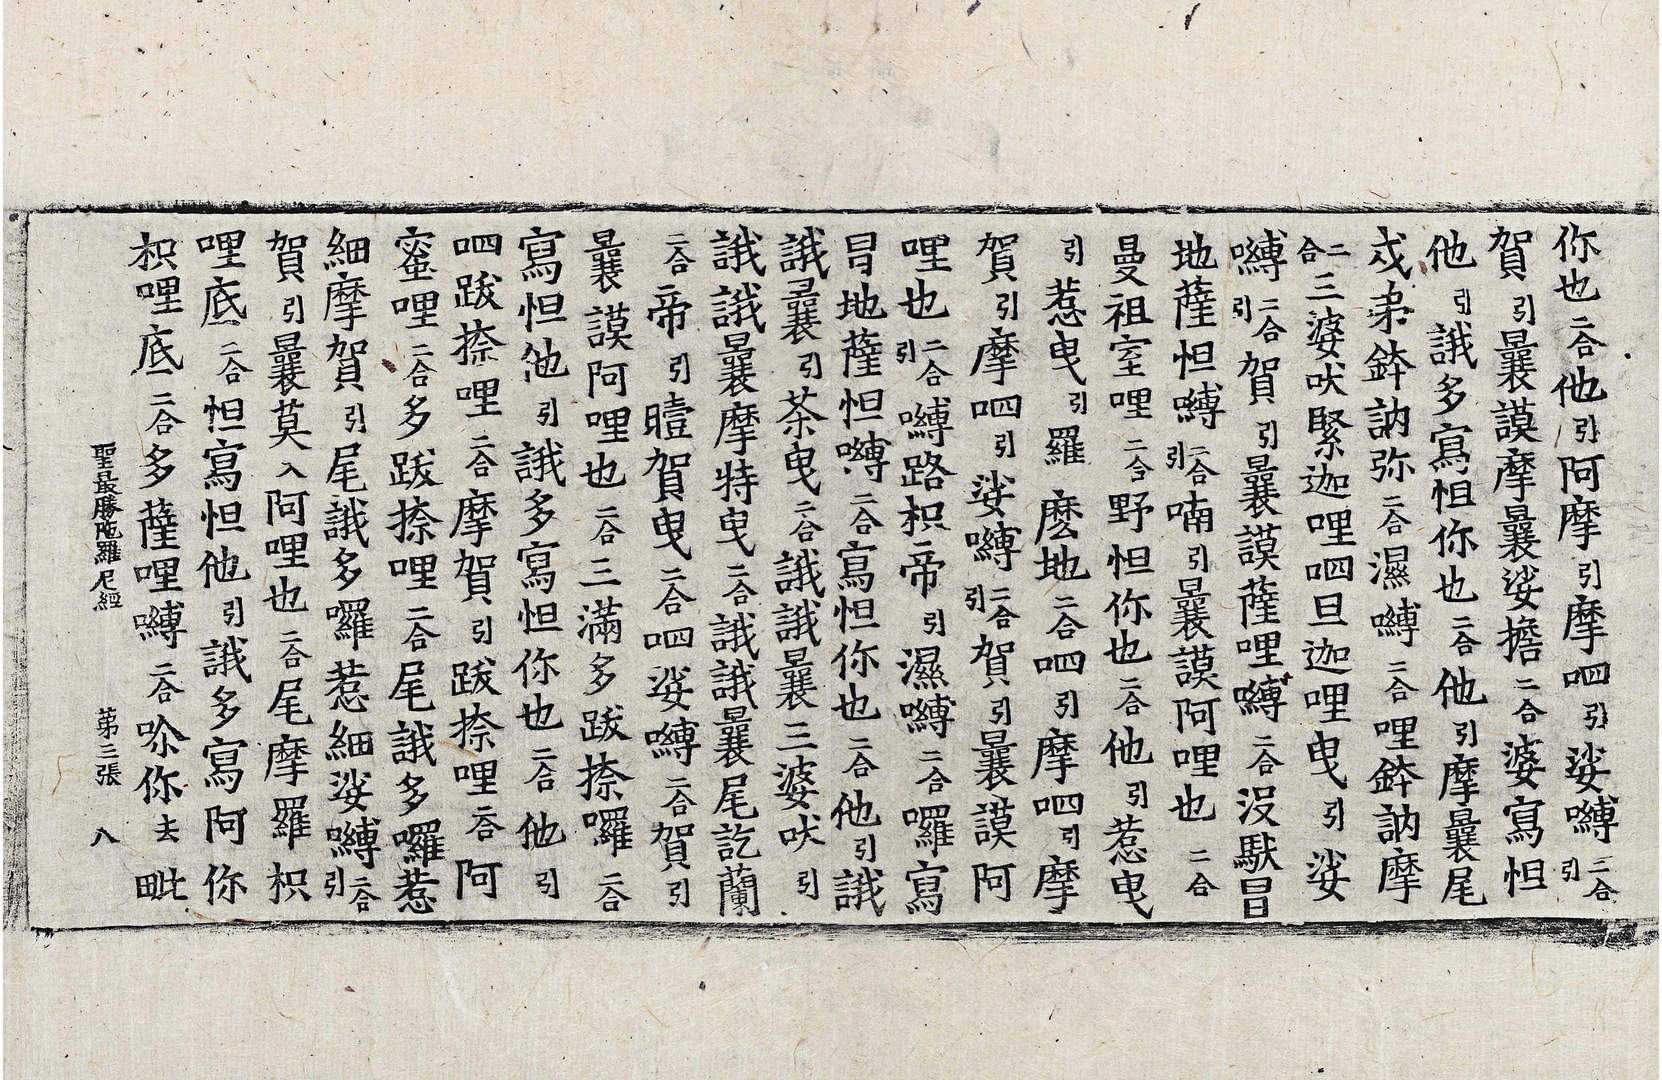 你也二合他引阿摩引摩呬引娑嚩二合引
賀引曩謨摩曩娑擔二合婆寫怛
他引誐多寫怛你也二合他引摩曩尾
戍弟鉢訥弥二合濕嚩二合哩鉢訥摩
二合三婆吠緊迦哩呬旦迦哩曳引娑
嚩二合引賀引曩謨薩哩嚩二合沒馱冒
地薩怛嚩二合引喃引曩謨阿哩也二合
曼祖室哩二合野怛你也二合他引惹曳
引惹曳引羅麼地二合呬引摩呬引摩
賀引摩呬引娑嚩二合引賀引曩謨阿
哩也二合引嚩路枳帝引濕嚩二合囉寫
冒地薩怛嚩二合寫怛你也二合他引誐
誐曩引茶曳二合誐誐曩三婆吠引
誐誐曩摩特曳二合誐誐曩尾訖蘭
二合帝引曀賀曳二合呬娑嚩二合賀引
曩謨阿哩也二合三滿多跋捺囉二合
寫怛他引誐多寫怛你也二合他引
呬跋捺哩二合摩賀引跋捺哩二合阿
蜜哩二合多跋捺哩二合尾誐多囉惹
細摩賀引尾誐多囉惹細娑嚩二合引
賀引曩莫入阿哩也二合尾摩羅枳
哩底二合怛寫怛他引誐多寫阿你
枳哩底二合多薩哩嚩二合唹你去毗
聖最勝陁羅尼經 第三張 八